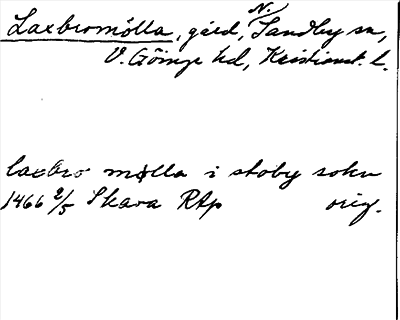 Laxbromölla, gård, N. Sandby sn,
V. Göinge hd, Kristianst. l.
laxbro mølla i støby sokn
1466 2/5 Skara RAp orig.